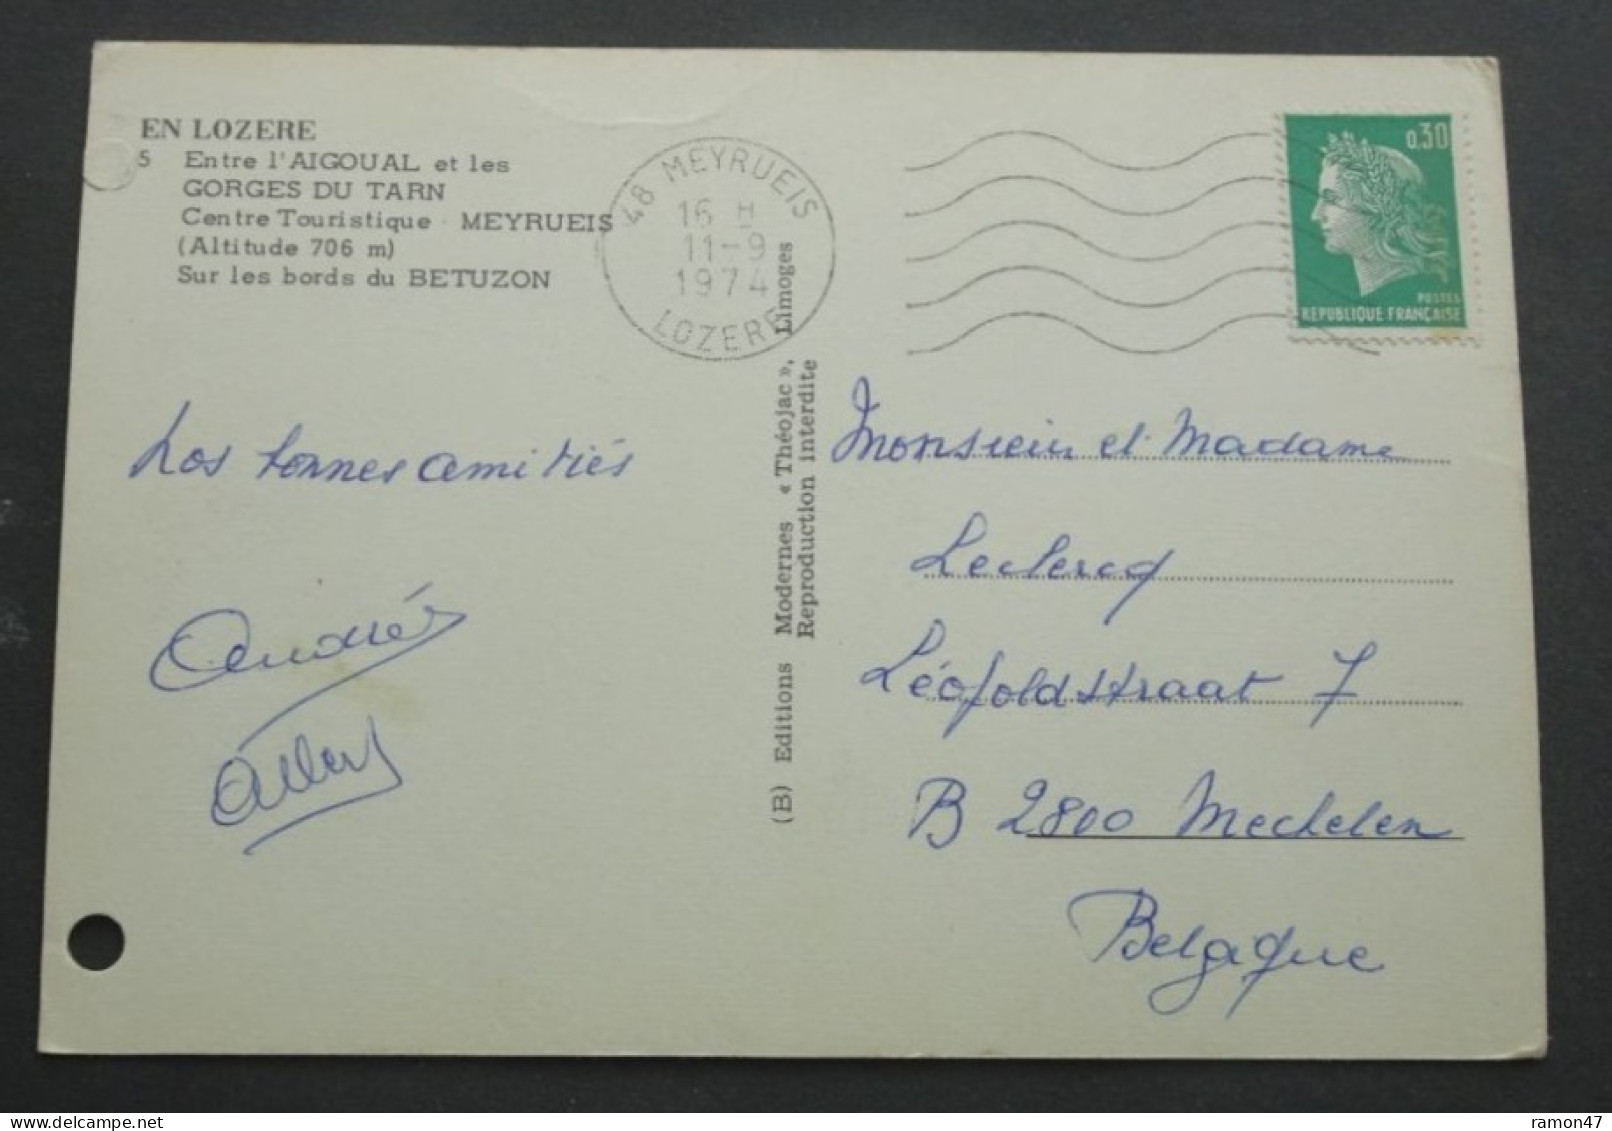 EN LOZERE
5 Entre l'AIGOUAL et les
GORGES DU TARN
Centre Touristique - MEYRUEIS
(Altitude 706 m)
Sur les bords du BETUZON
48 MEYRUEIS
16 H
11-9
1974
LOZERE
0,30
POSTES
REPUBLIQUE FRANÇAISE
Nos bonnes amitiés
Andrée
Albert
(B) Editions Modernes « Théojac », Limoges
Reproduction interdite
Monsieur et Madame
Leclercq
Léopoldstraat 7
B 2800 Mechelen
Belgique
ramon47